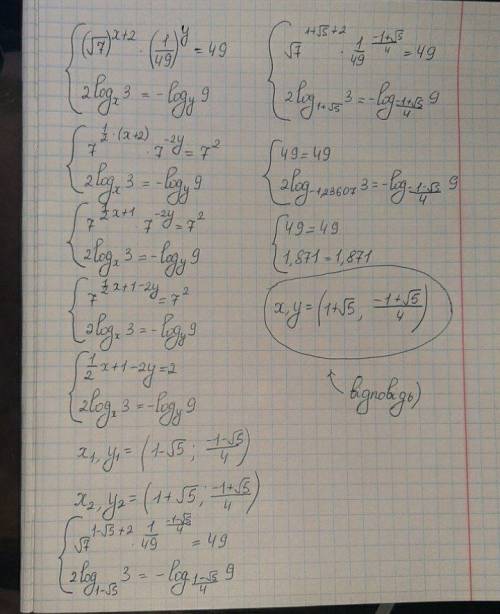 { (√7)^{x+2} · (1/49)^y = 49
2log_x 3 = -log_y 9
{ 7^{1/2·(x+2)} · 7^{-2y} = 7^2
2log_x 3 = -log_y 9
{ 7^{1/2x+1} · 7^{-2y} = 7^2
2log_x 3 = -log_y 9
{ 7^{1/2x+1-2y} = 7^2
2log_x 3 = -log_y 9
{ 1/2x+1-2y=2
2log_x 3 = -log_y 9
x₁,y₁ = (1-√5 ; -1-√5/4)
x₂,y₂ = (1+√5 ; -1+√5/4)
{ √7^{1-√5+2} · 1/49^{-1-√5/4} = 49
2log_{1-√5} 3 = -log_{1-√5/4} 9
{ √7^{1+√5+2} · 1/49^{-1+√5/4} = 49
2log_{1+√5} 3 = -log_{-1+√5/4} 9
{ 49=49
2log_{-1,23607} 3 = -log_{-1-√5/4} 9
{ 49=49
1,871=1,871
x,y = (1+√5 , -1+√5/4)
відповідь)